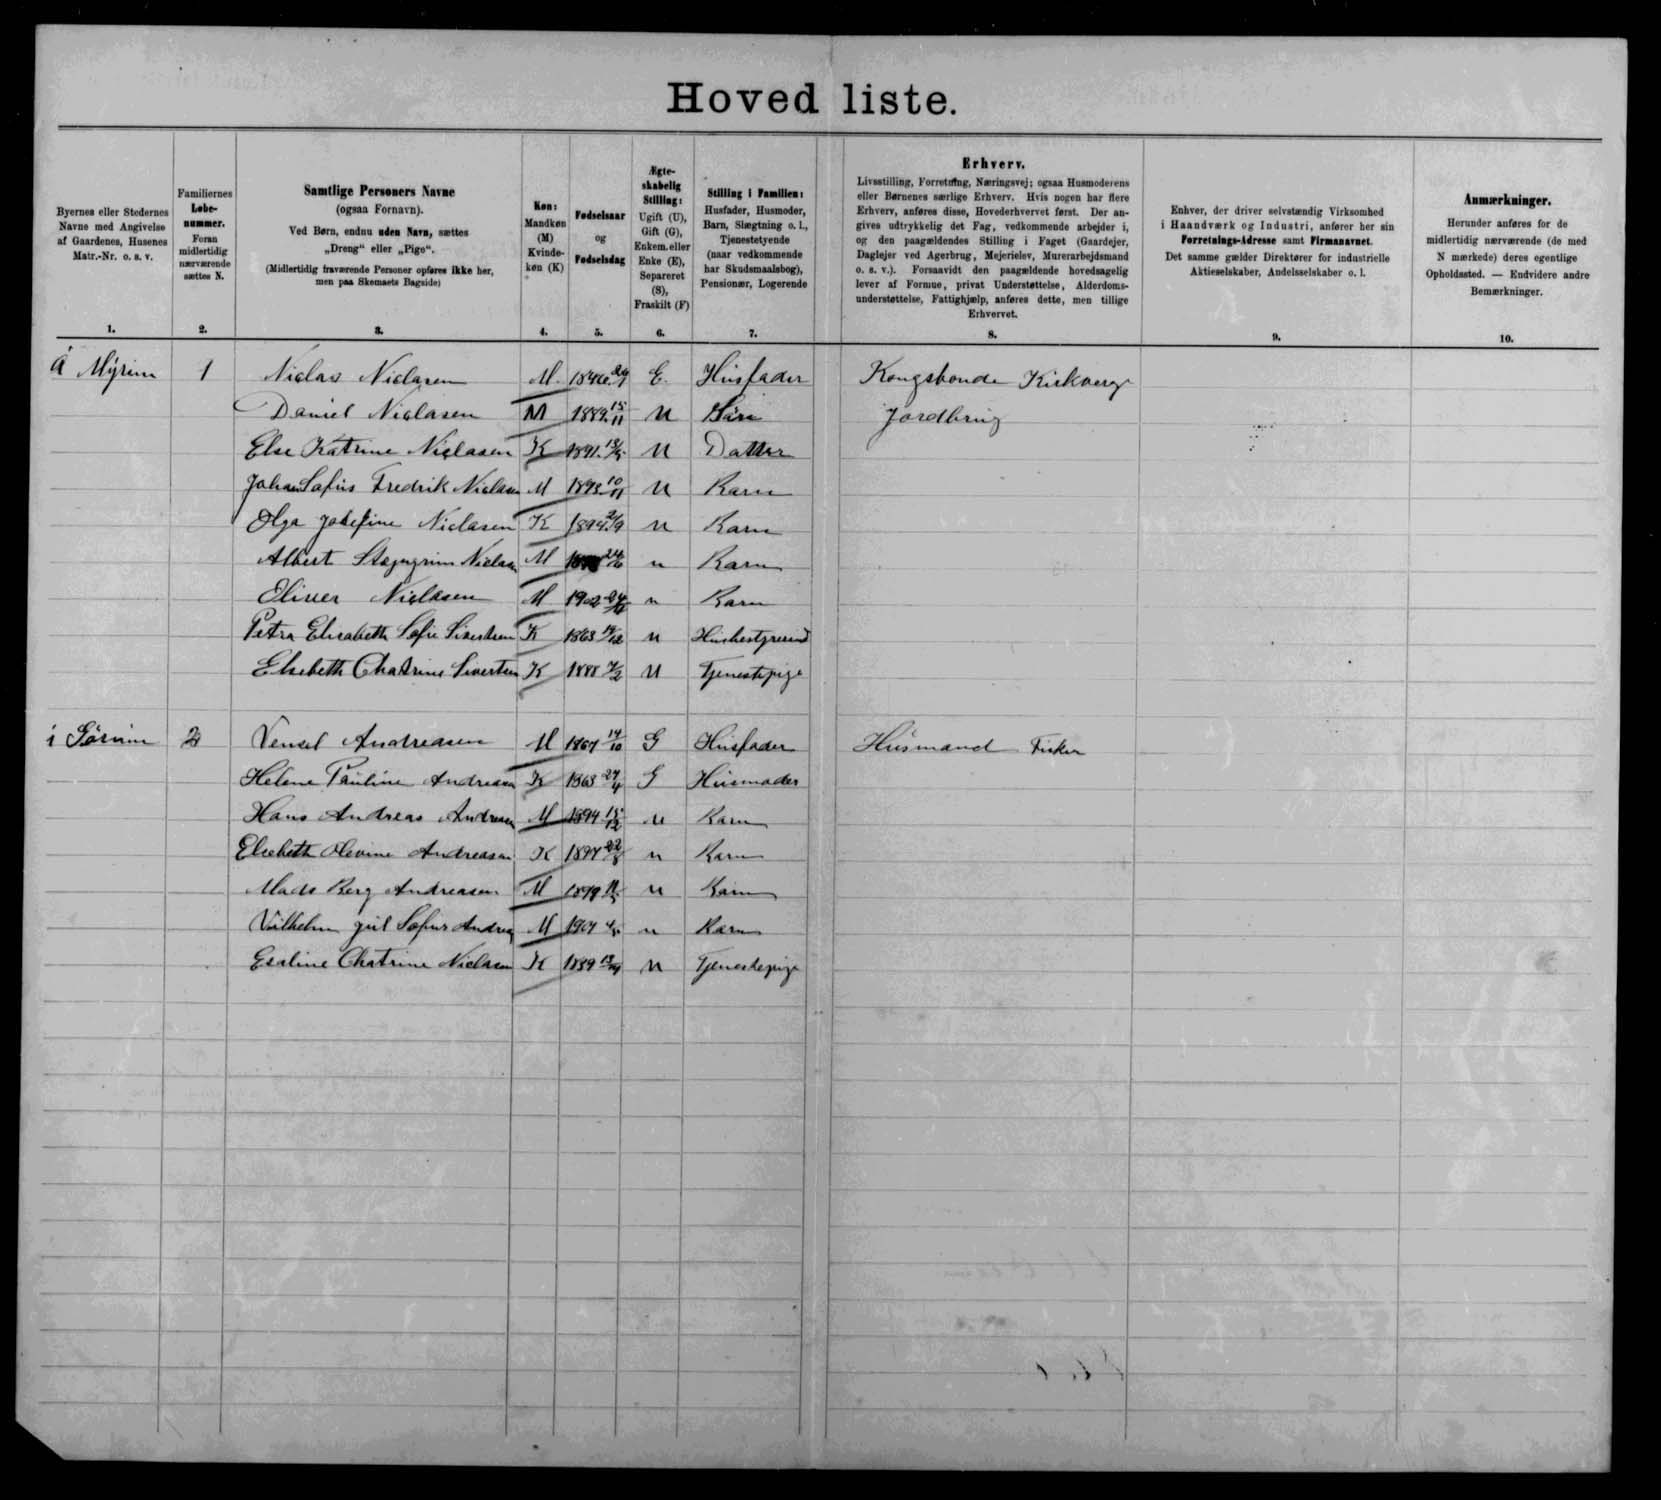 Hoved liste.
Byernes eller Stedernes
Navne med Angivelse
af Gaardenes, Husenes
Matr.-Nr. o. s. v.
1.
Familiernes
Løbe-
nummer.
Foran
midlertidig
nærværende
sættes N.
2.
Samtlige Personers Navne
(ogsaa Fornavn).
Ved Børn, endnu uden Navn, sættes
„Dreng“ eller „Pige“.
(Midlertidig fraværende Personer opføres ikke her,
men paa Skemaets Bagside)
3.
Køn:
Mandkøn
(M)
Kvinde-
køn (K)
4.
Fødselsaar
og
Fødselsdag
5.
Ægte-
skabelig
Stilling:
Ugift (U),
Gift (G),
Enkem. eller
Enke (E),
Separeret
(S),
Fraskilt (F)
6.
Stilling i Familien:
Husfader, Husmoder,
Barn, Slægtning o. l.,
Tjenestetyende
(naar vedkommende
har Skudsmaalsbog),
Pensionær, Logerende
7.
Erhverv.
Livsstilling, Forretning, Næringsvej; ogsaa Husmoderens
eller Børnenes særlige Erhverv. Hvis nogen har flere
Erhverv, anføres disse, Hovederhvervet først. Der an-
gives udtrykkelig det Fag, vedkommende arbejder i,
og den paagældendes Stilling i Faget (Gaardejer,
Daglejer ved Agerbrug, Mejerielev, Murerarbejdsmand
o. s. v.). Forsaavidt den paagældende hovedsagelig
lever af Formue, privat Understøttelse, Alderdoms-
understøttelse, Fattighjælp, anføres dette, men tillige
Erhvervet.
8.
Enhver, der driver selvstændig Virksomhed
i Haandværk og Industri, anfører her sin
Forretnings-Adresse samt Firmanavnet.
Det samme gælder Direktører for industrielle
Aktieselskaber, Andelsselskaber o. l.
9.
Anmærkninger.
Herunder anføres for de
midlertidig nærværende (de med
N mærkede) deres egentlige
Opholdssted. — Endvidere andre
Bemærkninger.
10.
á Mýrum 1 Niclas Niclasen M. 1846 E. Húsfader Kongsbonde Kirkverge
Daniel Niclasen M 1889 15/11 U Sön Jordbrug
Else Katrine Niclasen K 1891 U Datter
Johan Sofus Fredrik Niclasen M 1893 10/11 U Barn
Olga Josefine Niclasen K 1894 U Barn
Albert Niclasen M U Barn
Oliver Niclasen M 1902 U Barn
Petra Elisabeth Sofie Sivertsen K 1863 U
Elsebeth Chatrine Sivertsen K 1888 U Tjenestepige
i 2 Andreasen M 1867 14/10 G Húsfader Húsmand Fisker
Helene Paúline Andreasen K 1863 G Húsmoder
Hans Andreas Andreasen M 1894 15/12 U Barn
Elsebeth Olevine Andreasen K 1897 U Barn
Mads Berg Andreasen M 1899 U Barn
Vilhelm Júl Sofus M 1904 U Barn
Esaline Chatrine Niclasen K 1889 U Tjenestepige